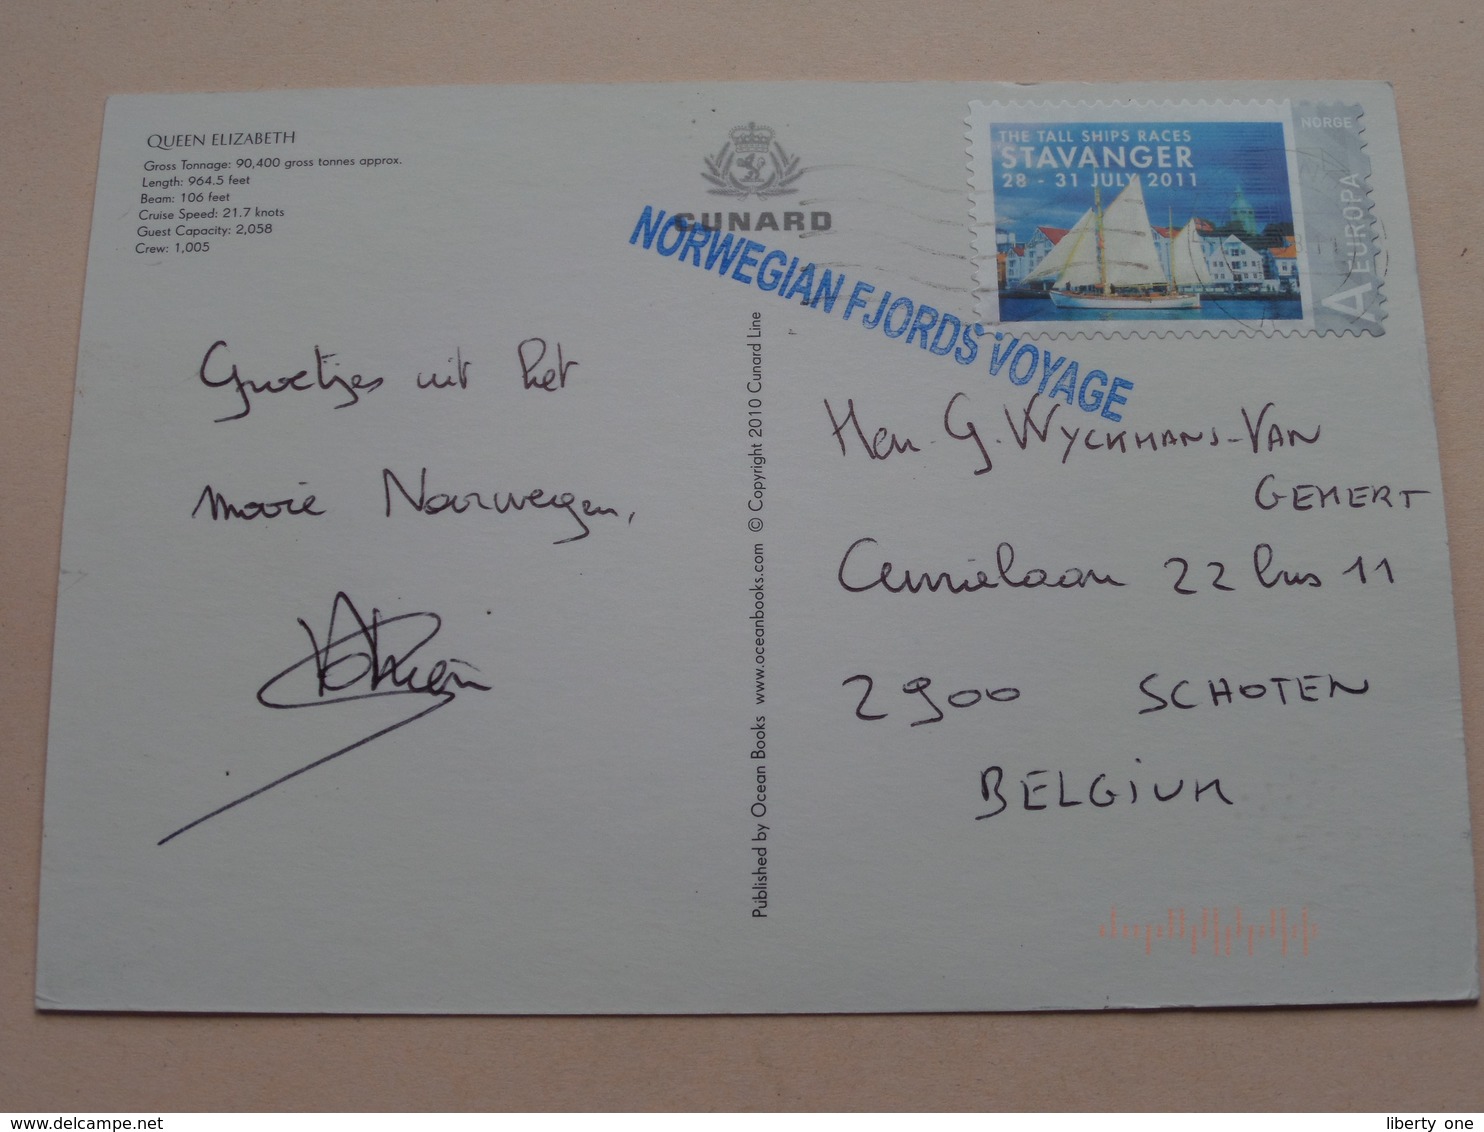 QUEEN ELIZABETH
Gross Tonnage: 90,400 gross tonnes approx.
Length: 964.5 feet
Beam: 106 feet
Cruise Speed: 21.7 knots
Guest Capacity: 2,058
Crew: 1,005
CUNARD
NORWEGIAN FJORDS VOYAGE
THE TALL SHIPS RACES
STAVANGER
28 - 31 JULY 2011
NORGE
A EUROPA
Groetjes uit het
mooie Noorwegen,
Published by Ocean Books www.oceanbooks.com © Copyright 2010 Cunard Line
Hen. G. WYCKMANS-VAN
GEMERT
22 bus 11
2900 SCHOTEN
BELGIUM
www.delcampe.net
liberty one